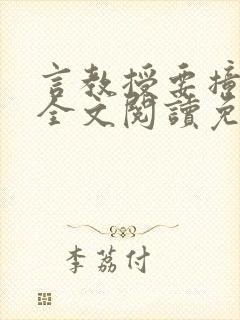 言教授要撞
全文閱讀免
李荔付